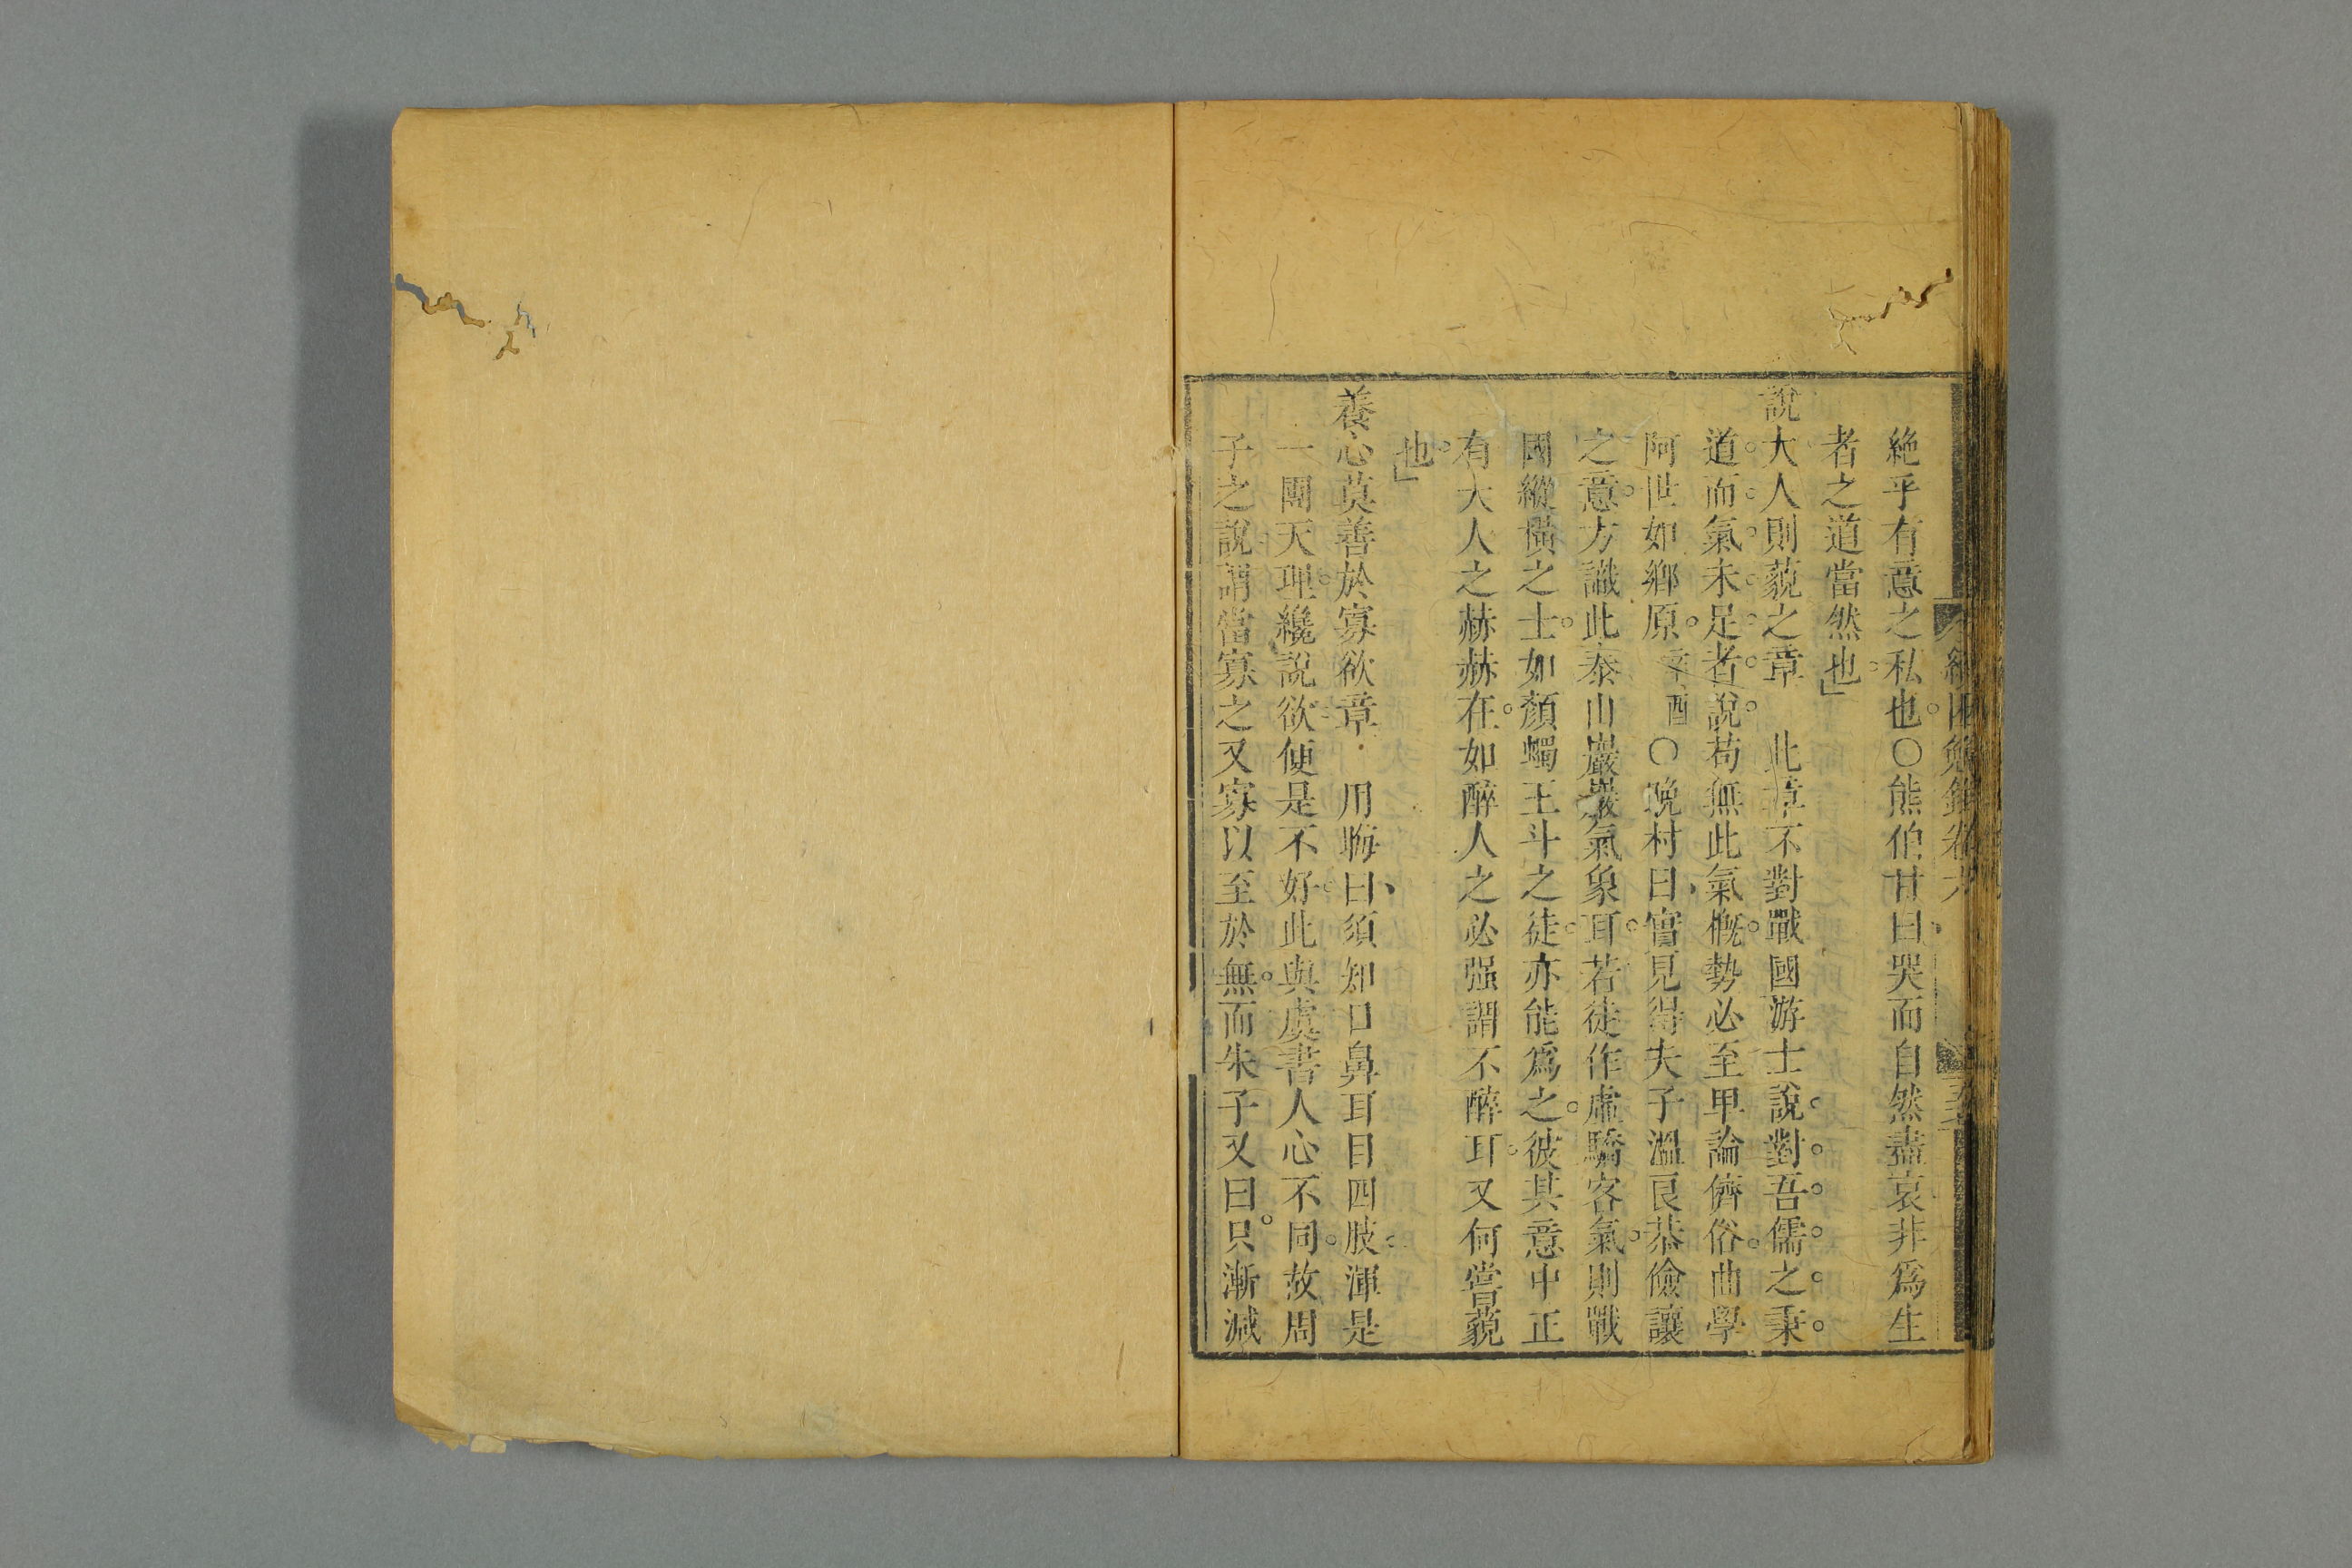 絶乎有意之私也〇熊伯甘曰哭而自然盡哀非爲生
者之道當然也」
說大人則藐之章　此章不對戰國游士說對吾儒之秉
道而氣未足者說苟無此氣槪勢必至甲論儕俗曲學
阿世如鄕原辛酉〇晚村曰實見得夫子溫良恭儉讓
之意方識此泰山巖巖氣象耳若徒作虛驕客氣則戰
國縱橫之士如顏蠋王斗之徒亦能爲之彼其意中正
有大人之赫赫在如醉人之必强謂不醉耳又何嘗藐
也」
養心莫善於寡欲章　用晦曰須知口鼻耳目四肢渾是
一團天理纔說欲便是不好此與虞書人心不同故周
子之說謂當寡之又寡以至於無而朱子又曰只漸減